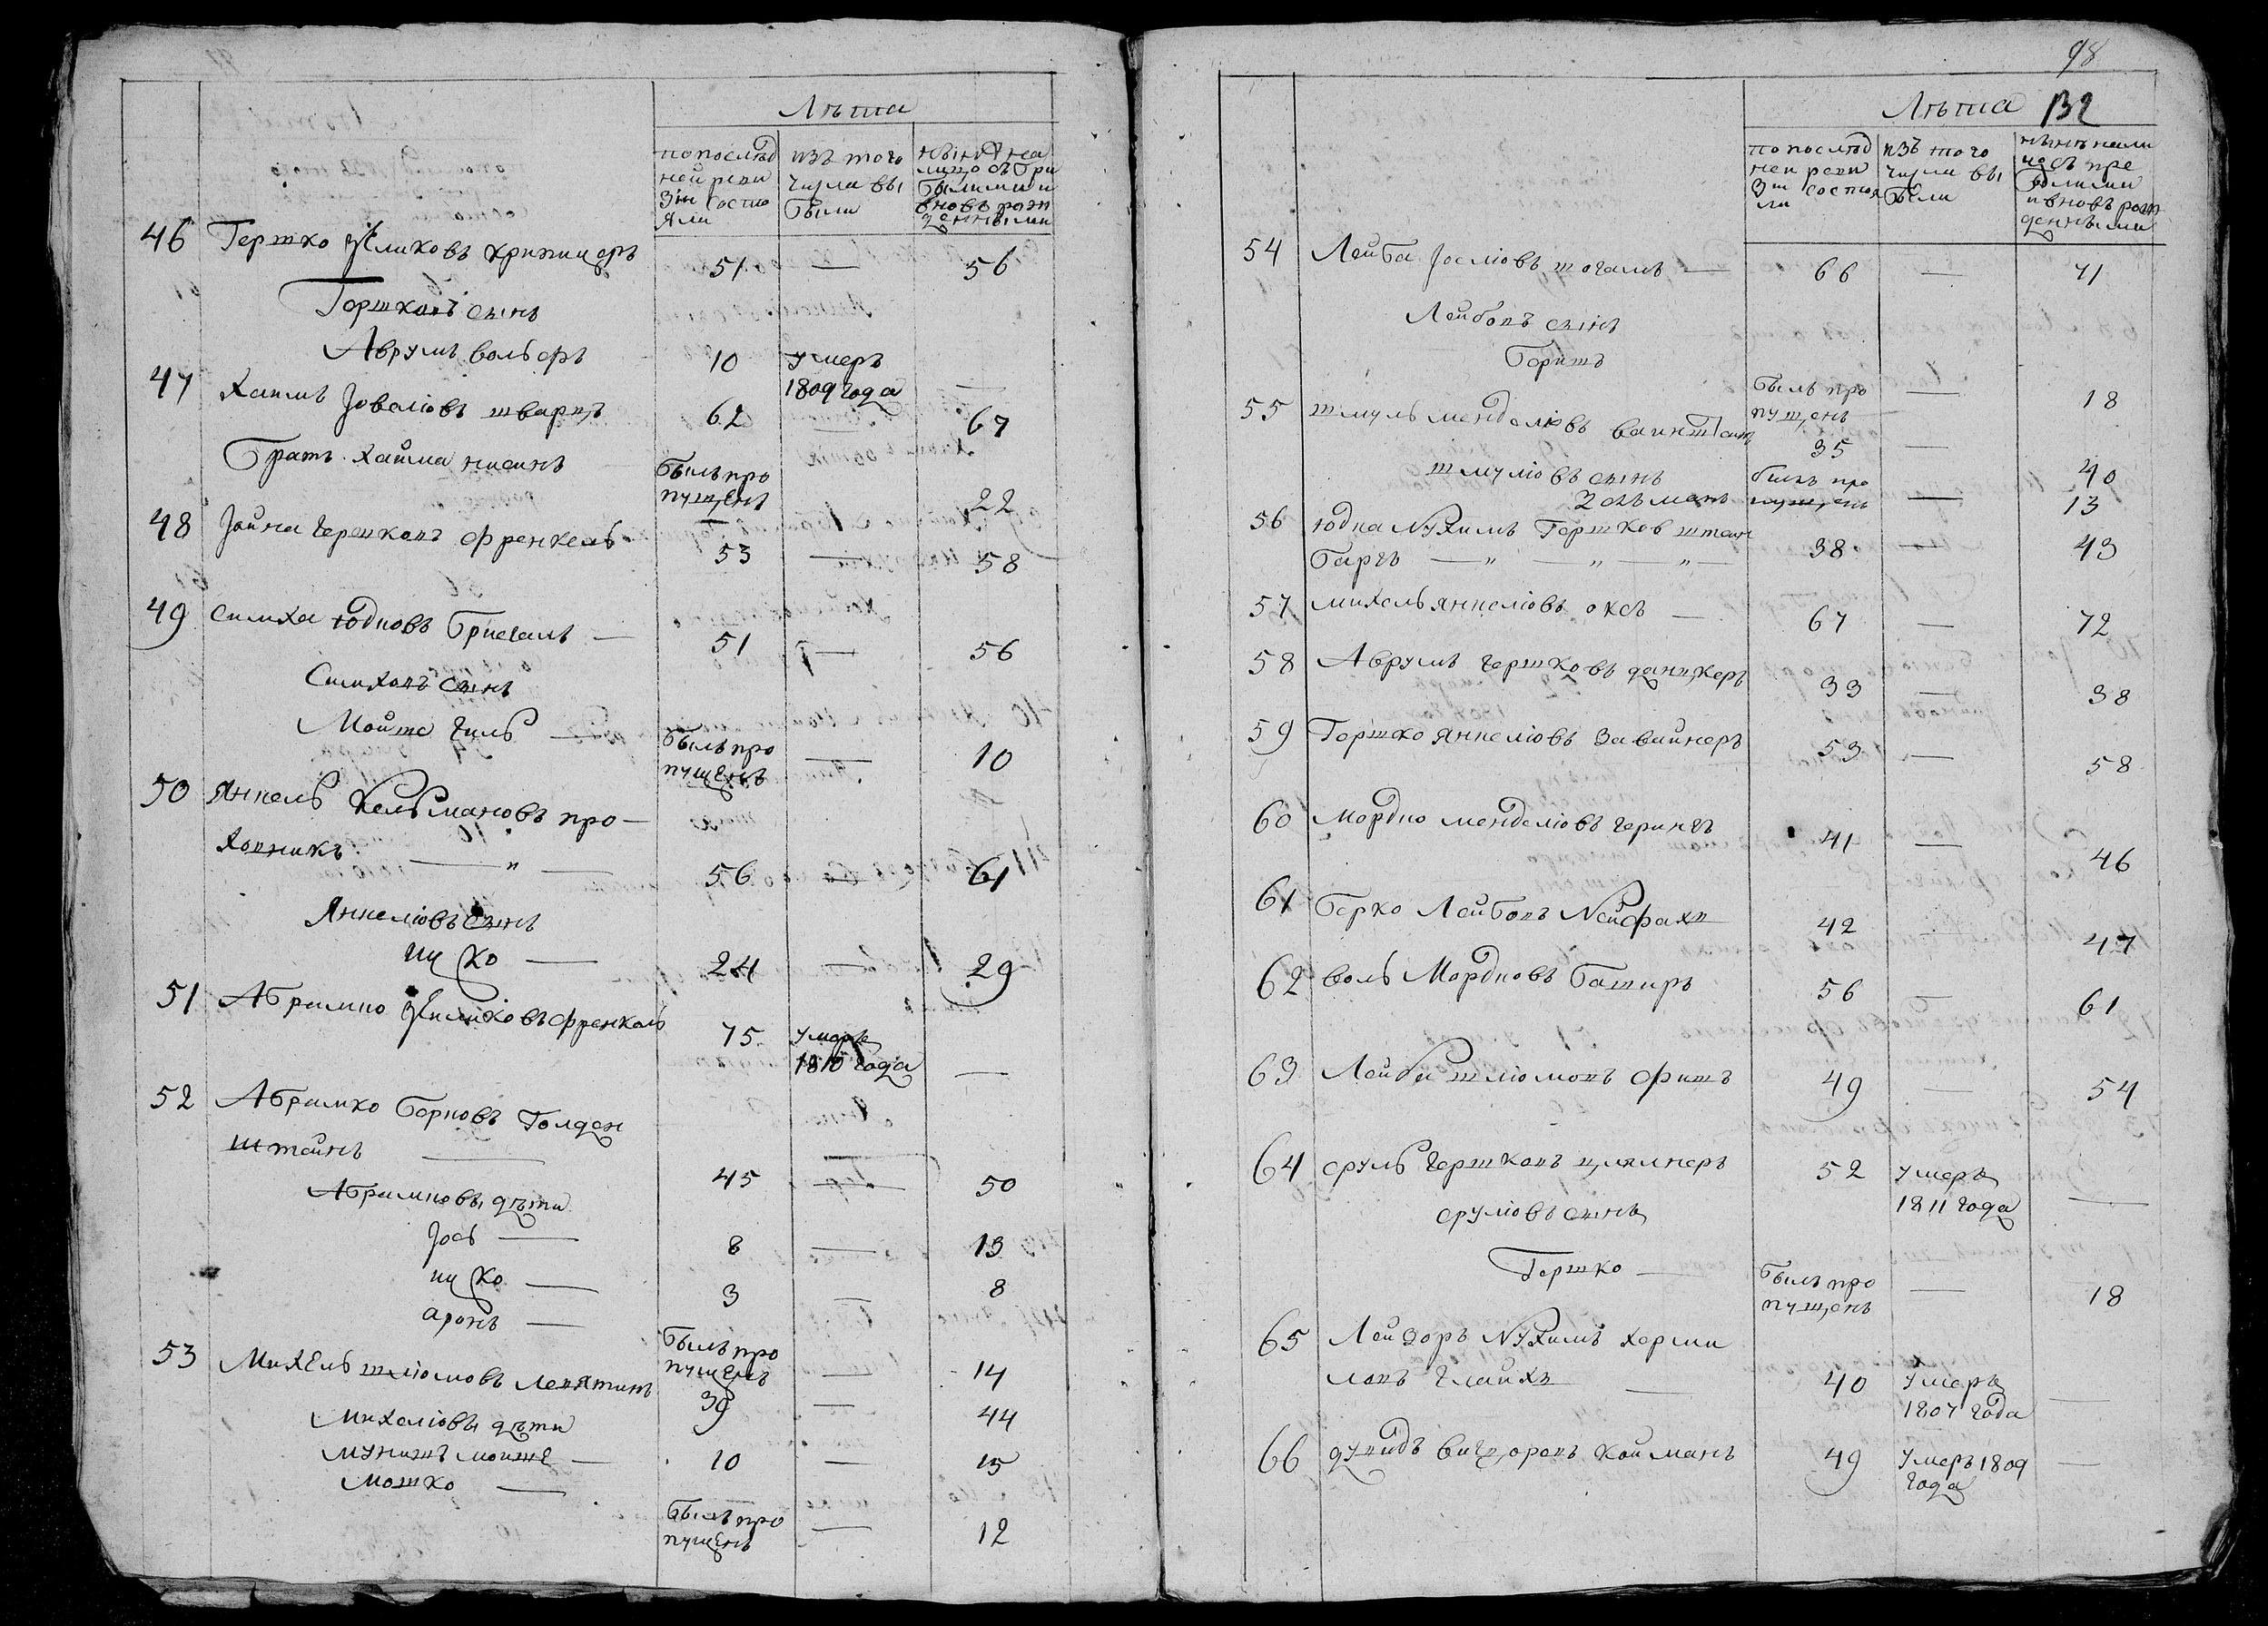 Лѣта
по послѣд
ней реви
зіи состо
яли
изъ того
числа вы
были
нынѣ на
лицо съ при
былыми и
вновь рож
денными
46 Гершко Зеликовъ 51 — 56
Гершковъ сынъ
Аврумъ вольфъ 10 умеръ
1809 года —
47 Хаимъ Іовеліовъ шварцъ 62 67
Братъ Хаима нисинъ былъ про
пущенъ 22
48 Іойна гершковъ френкель 53 — 58
49 симха юдковъ 51 — 56
Симховъ сынъ
Мойше гиль — былъ про
пущенъ — 10
50 Янкель Кельмановъ про—
ховникъ — " — 56 — 61
Янкеліовъ сынъ
ицко — 24 — 29
51 Абрамко Зеликовъ френкель 75 умеръ
1810 года —
52 Абрамко Берковъ Голден
штейнъ — 45 — 50
Абрамковы дѣти
Іось — 8 — 13
ицко — 3 — 8
аронъ — былъ про
пущенъ — 14
53 Михель шліомовъ 39 — 44
Михеліовы дѣти
мунишъ мойше — 10 — 15
мошко — былъ про
пущенъ — 12
98
Лѣта В2
по послѣд
ней реви
зіи состоя
ли
изъ того
числа вы
были
нынѣ нали
цо съ при
былыми
и вновь рож
денными
54 Лейба Іосліовъ — 66 — 71
Лейбовъ сынъ
Беришъ былъ про
пущенъ — 18
55 шмуль менделіовъ ваинштеинъ 35 — 40
шмуліовъ сынъ
Зельманъ былъ про
пущенъ — 13
56 юдка Нухимъ Гершков штеин
бергъ — " — " — " — 38 — 43
57 михель янкеліовъ оксъ — 67 — 72
58 Аврумъ гершковъ данцкеръ 33 — 38
59 Гершко янкеліовъ 53 — 58
60 мордко менделіовъ герингъ 41 — 46
61 Берко Лейбовъ Нейфахъ 42 47
62 воль Мордковъ 56 61
63 Лейба шліомовъ фишъ 49 — 54
64 сруль гершковъ 52 умеръ
1811 года —
сруліовъ сынъ
Гершко — былъ про
пущенъ — 18
65 Лейзоръ Нухимъ
— 40 умеръ
1807 года —
66 койманъ 49 умеръ 1809
года —